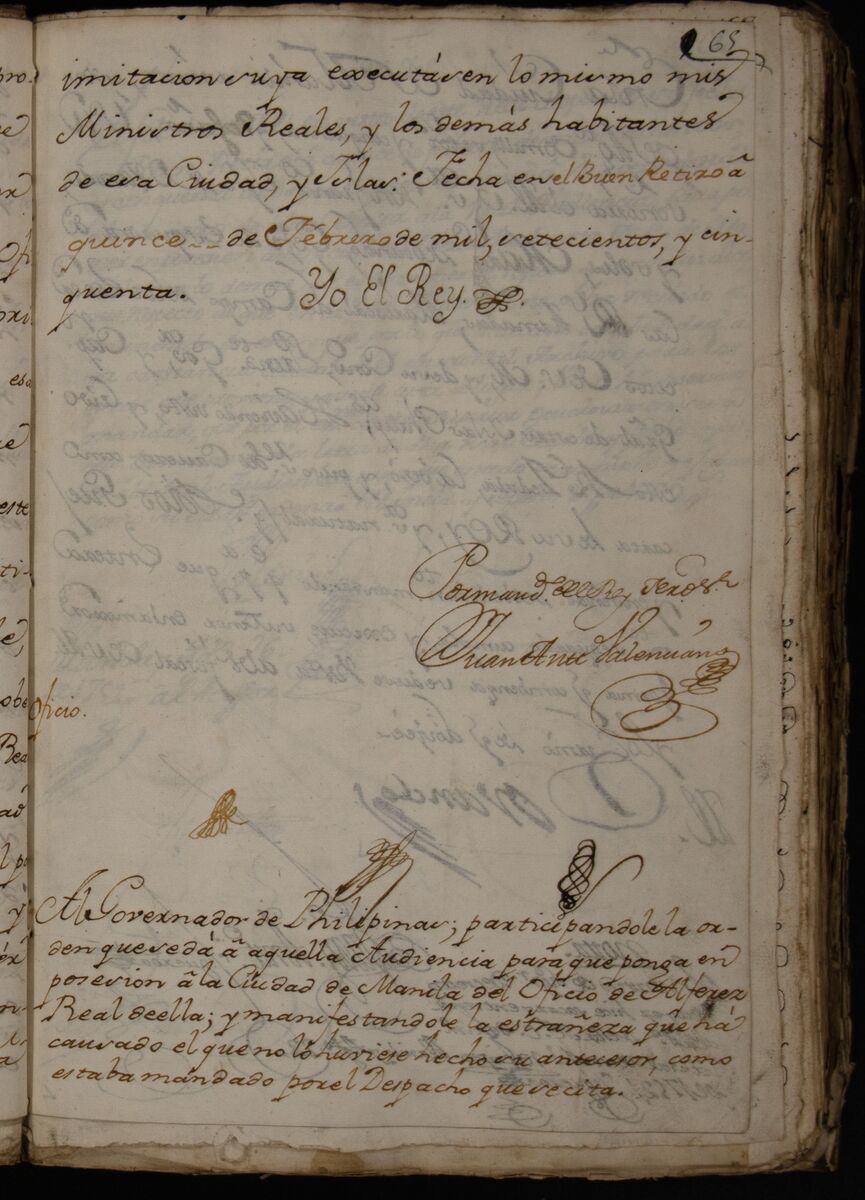 65
imitacion suya executásen lo mismo mis
Ministros Reales, y los demás habitantes
de esa Ciudad, y Islas: Fecha en el Buen Retiro â
quince -- de Febrero de mil, setecientos, y cin-
quenta.
Yo El Rey.
Por mand.º del Rey Nro S.r
Juan Ant.º Valenciano
Oficio.
Al Governador de Philipinas; participandole la or-
den que se dá â aquella Audiencia para que ponga en
posesion â la Ciudad de Manila del Oficio de Alferez
Real de ella; y manifestandole la estrañeza que há
causado el que no lo huviese hecho su antecesor, como
estaba mandado por el Despacho que se cita.